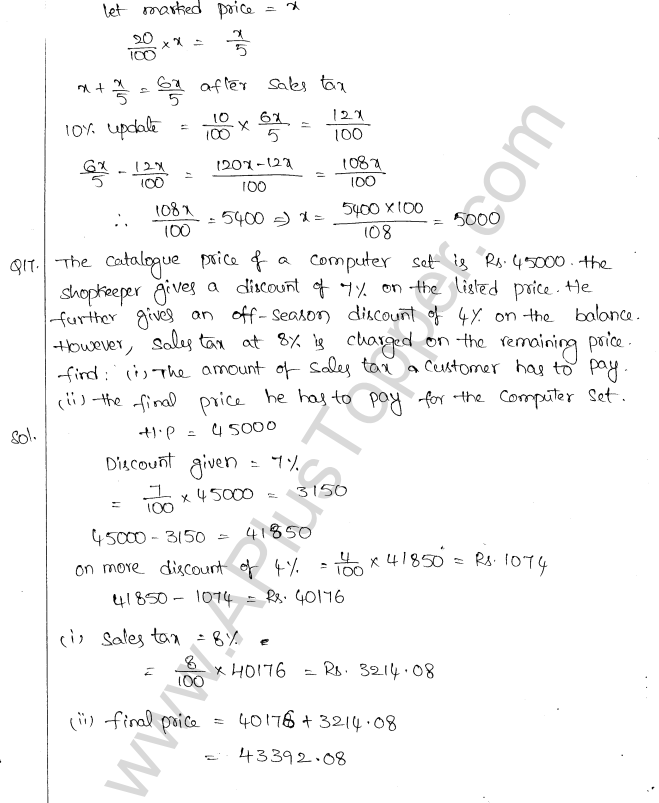 let marked price = x
20/100 × x = x/5
x + x/5 = 6x/5 after sales tax
10% update = 10/100 × 6x/5 = 12x/100
6x/5 - 12x/100 = 120x-12x/100 = 108x/100
∴ 108x/100 = 5400 ⇒ x = 5400×100/108 = 5000
Q17. The catalogue price of a computer set is Rs. 45000. the
shopkeeper gives a discount of 7% on the listed price. He
further gives an off-season discount of 4% on the balance.
However, sales tax at 8% is charged on the remaining price.
find: (i) The amount of sales tax a customer has to pay.
(ii) the final price he has to pay for the computer set.
Sol. M.P = 45000
Discount given = 7%
= 7/100 × 45000 = 3150
45000 - 3150 = 41850
on more discount of 4% = 4/100 × 41850 = Rs. 1074
41850 - 1074 = Rs. 40176
(i) Sales tax = 8%
= 8/100 × 40176 = Rs. 3214.08
(ii) final price = 40176 + 3214.08
= 43392.08
www.APlusTopper.com